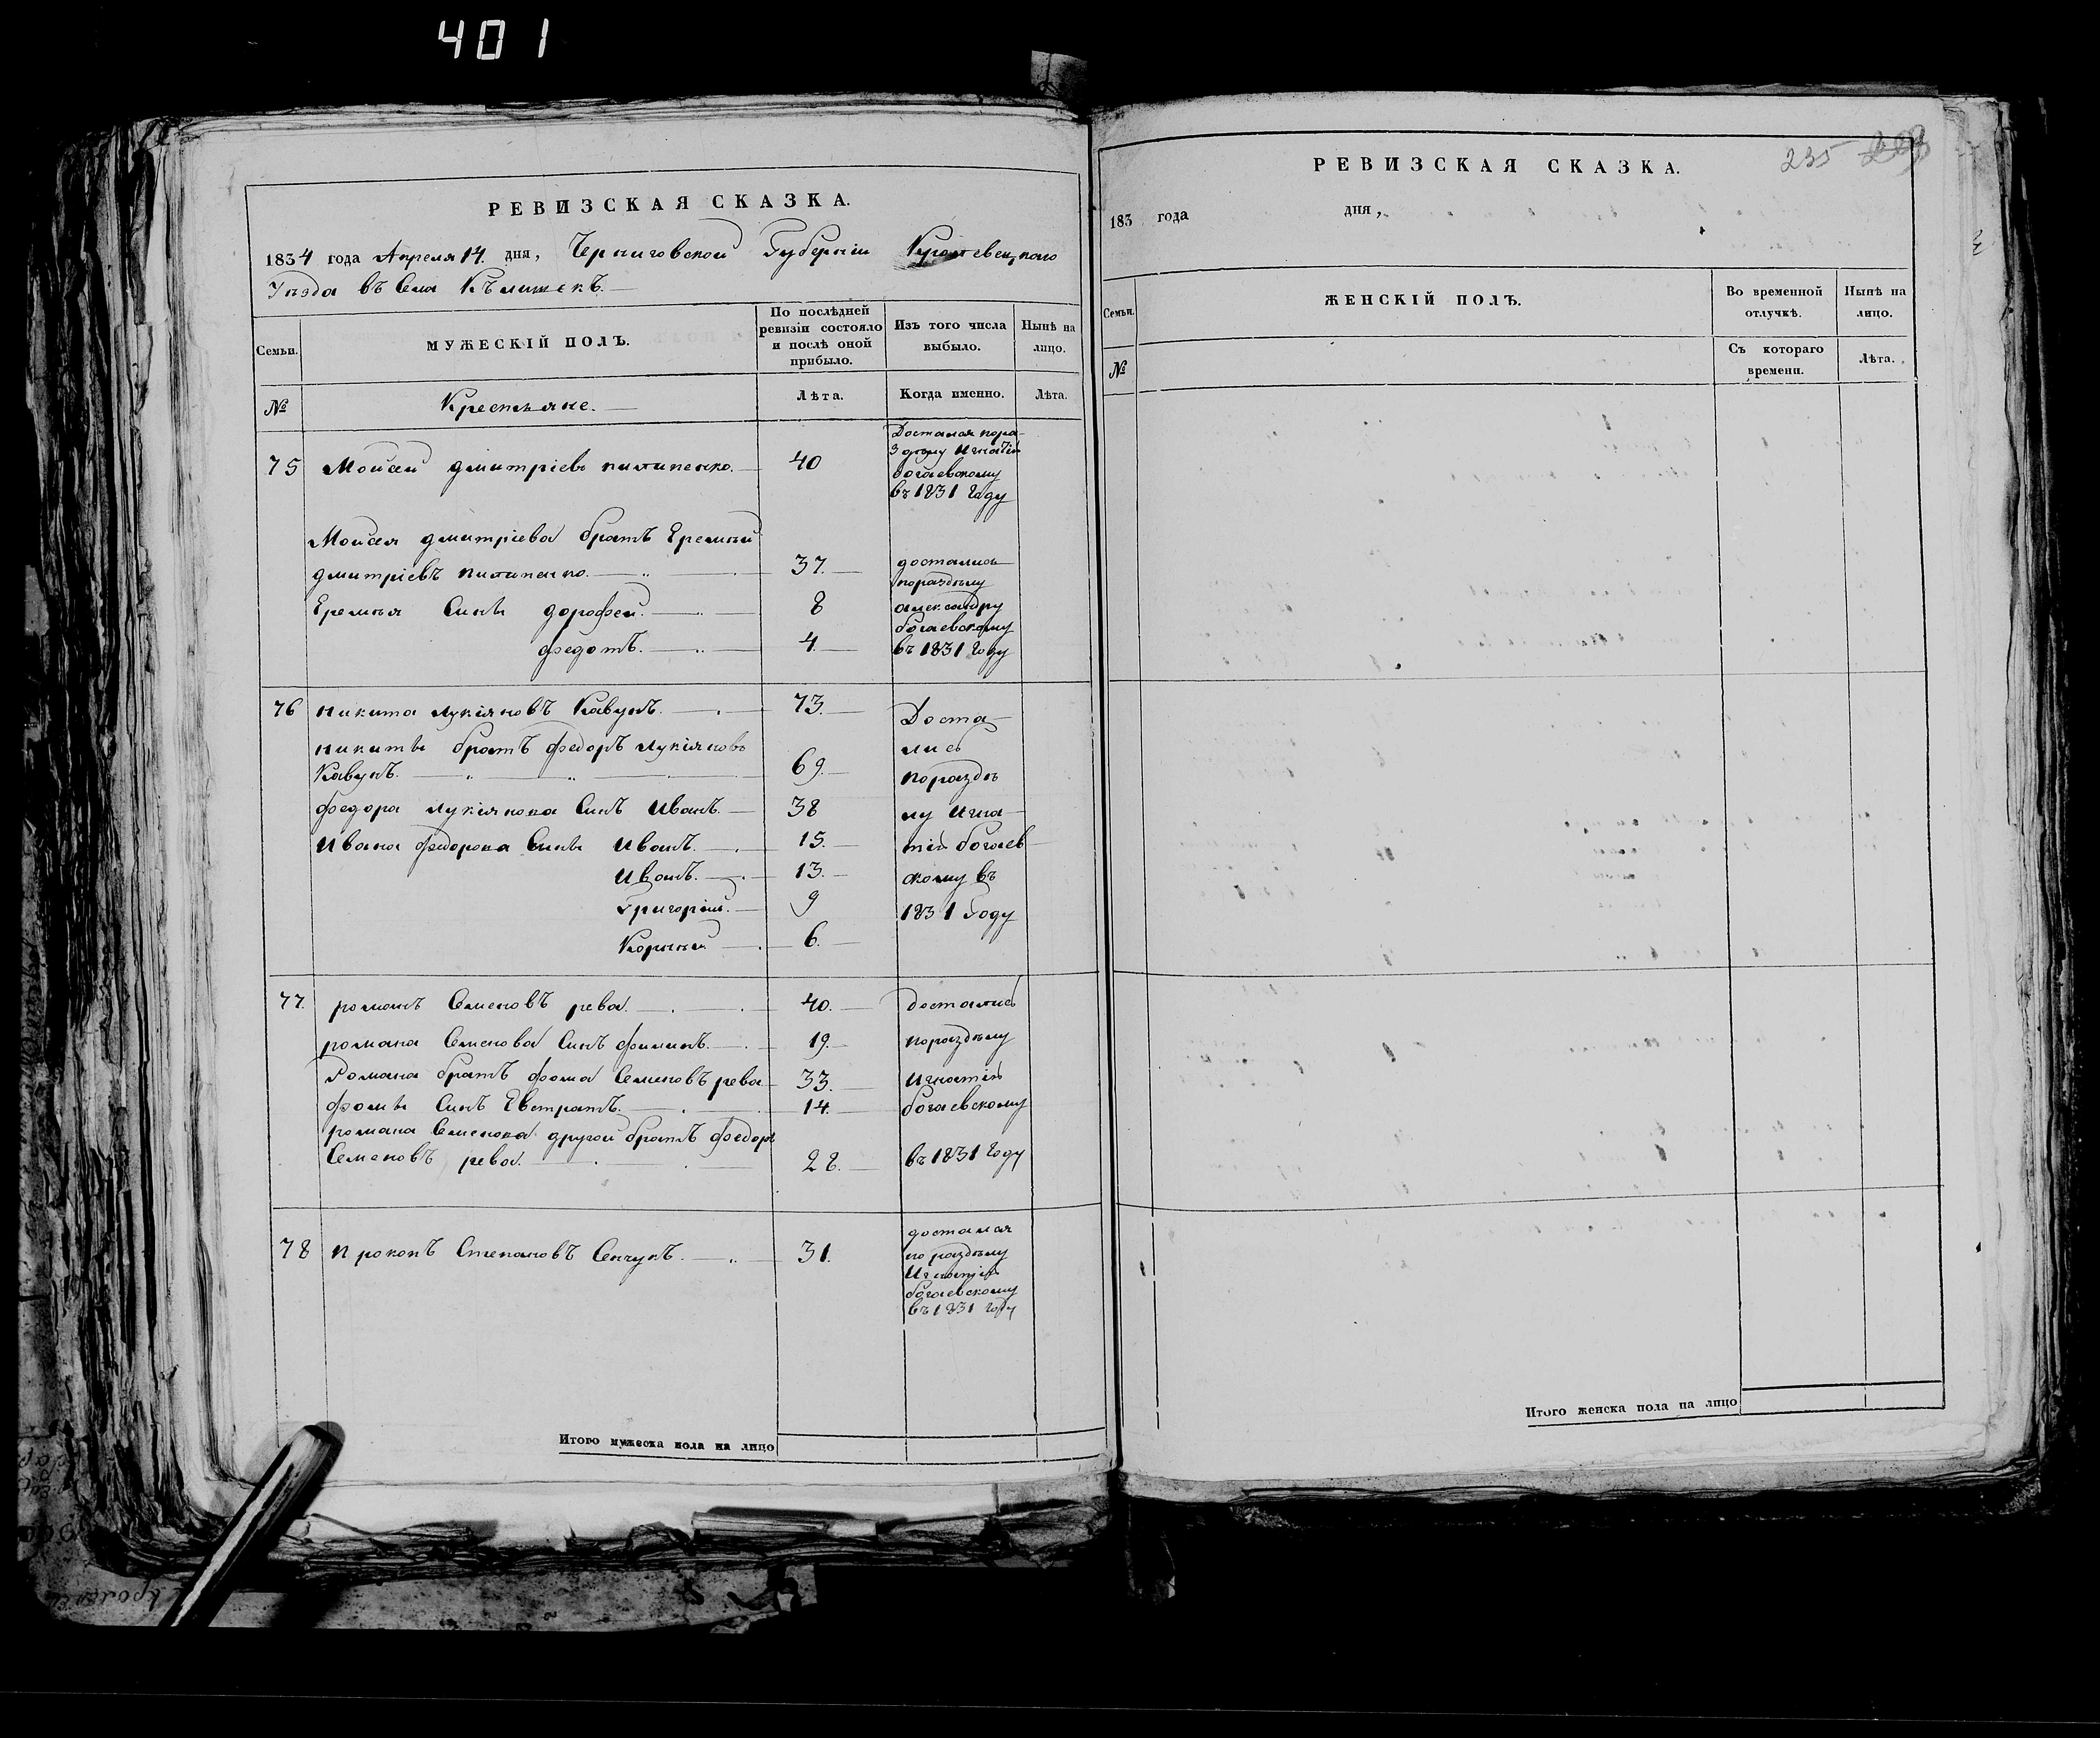 401
РЕВИЗСКАЯ СКАЗКА.
1834 года Апреля 14. дня, Черниговской Губерніи
Уѣзда въ Села
Семьи.
МУЖЕСКІЙ ПОЛЪ.
По послѣдней
ревизіи состояло
и послѣ оной
прибыло.
Изъ того числа
выбыло.
Нынѣ на
лицо.
№
Крестьяне.
Лѣта.
Когда именно.
Лѣта.
75 Моисей дмитріевъ пилипенко. 40
Достался пора
зделу Игнатію
богаевскому
въ 1831 Году
Моисея дмитріева братъ Еремѣй
дмитріевъ пилипенко. 37.
Еремѣя Сины дорофей. 8
федотъ. 4.
достались
поразделу
александру
богаевскому
въ 1831 Году
76 никита лукіяновъ Кавунъ. 73.
никиты братъ федоръ лукіяновъ
Кавунъ. 69.
федора лукіянова Синъ Иванъ. 38
Ивана федорова Сины Иванъ. 15.
Иванъ. 13.
Григорій. 9
Корнѣй 6.
Доста
лись
пораздѣ
лу Игна
тію богаев
скому въ
1831 Году
77. романъ Семеновъ рева. 40.
романа Семенова Синъ филипъ. 19.
Романа братъ фома Семеновъ рева 33.
фомы Синъ Евстратъ. 14.
романа Семенова другой братъ федоръ
Семеновъ рева. 28.
достались
поразделу
Игнатію
богаевскому
въ 1831 Году
78 прокопъ Степановъ Сенчукъ. 31.
достался
по разделу
Игнатію
богаевскому
въ 1831 году
Итого мужеска пола на лицо
235
РЕВИЗСКАЯ СКАЗКА.
183 года дня,
Семьи.
ЖЕНСКІЙ ПОЛЪ.
Во временной
отлучкѣ.
Нынѣ на
лицо.
№
Съ котораго
времени.
Лѣта.
Итого женска пола на лицо